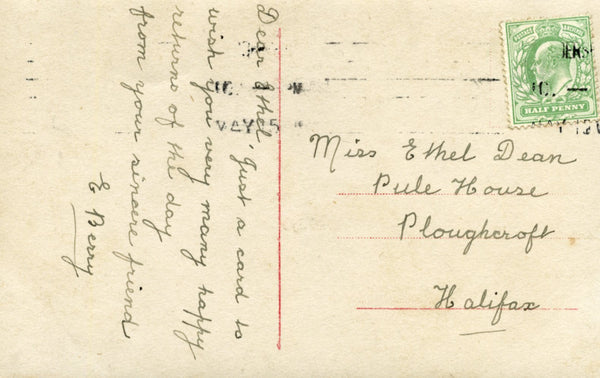 Dear Ethel, Just a card to
wish you very many happy
returns of the day
from your sincere friend
E Berry
Miss Ethel Dean
Pule House
Ploughcroft
Halifax
HALF PENNY